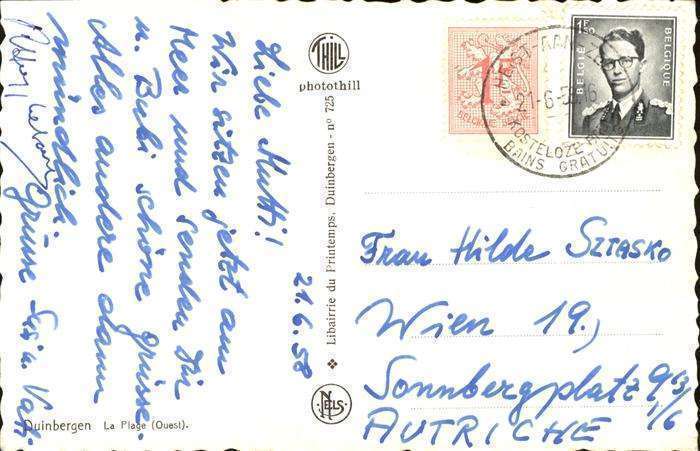 21.6.58
Liebe Mutti!
Wir sitzen jetzt am
Meer und senden Dir
u. Bubi schöne Grüsse.
Alles andere dann
mündlich.
Grüsse Susi u.
THILL
photothill
Libairrie du Printemps, Duinbergen - nº 725
NELS
Duinbergen La Plage (Ouest).
1F
BELGIE
1F50
BELGIE BELGIQUE
21-6-58
KOSTELOZE
BAINS GRATUI
Frau Hilde SZTASKO
Wien 19.,
Sonnbergplatz
AUTRICHE